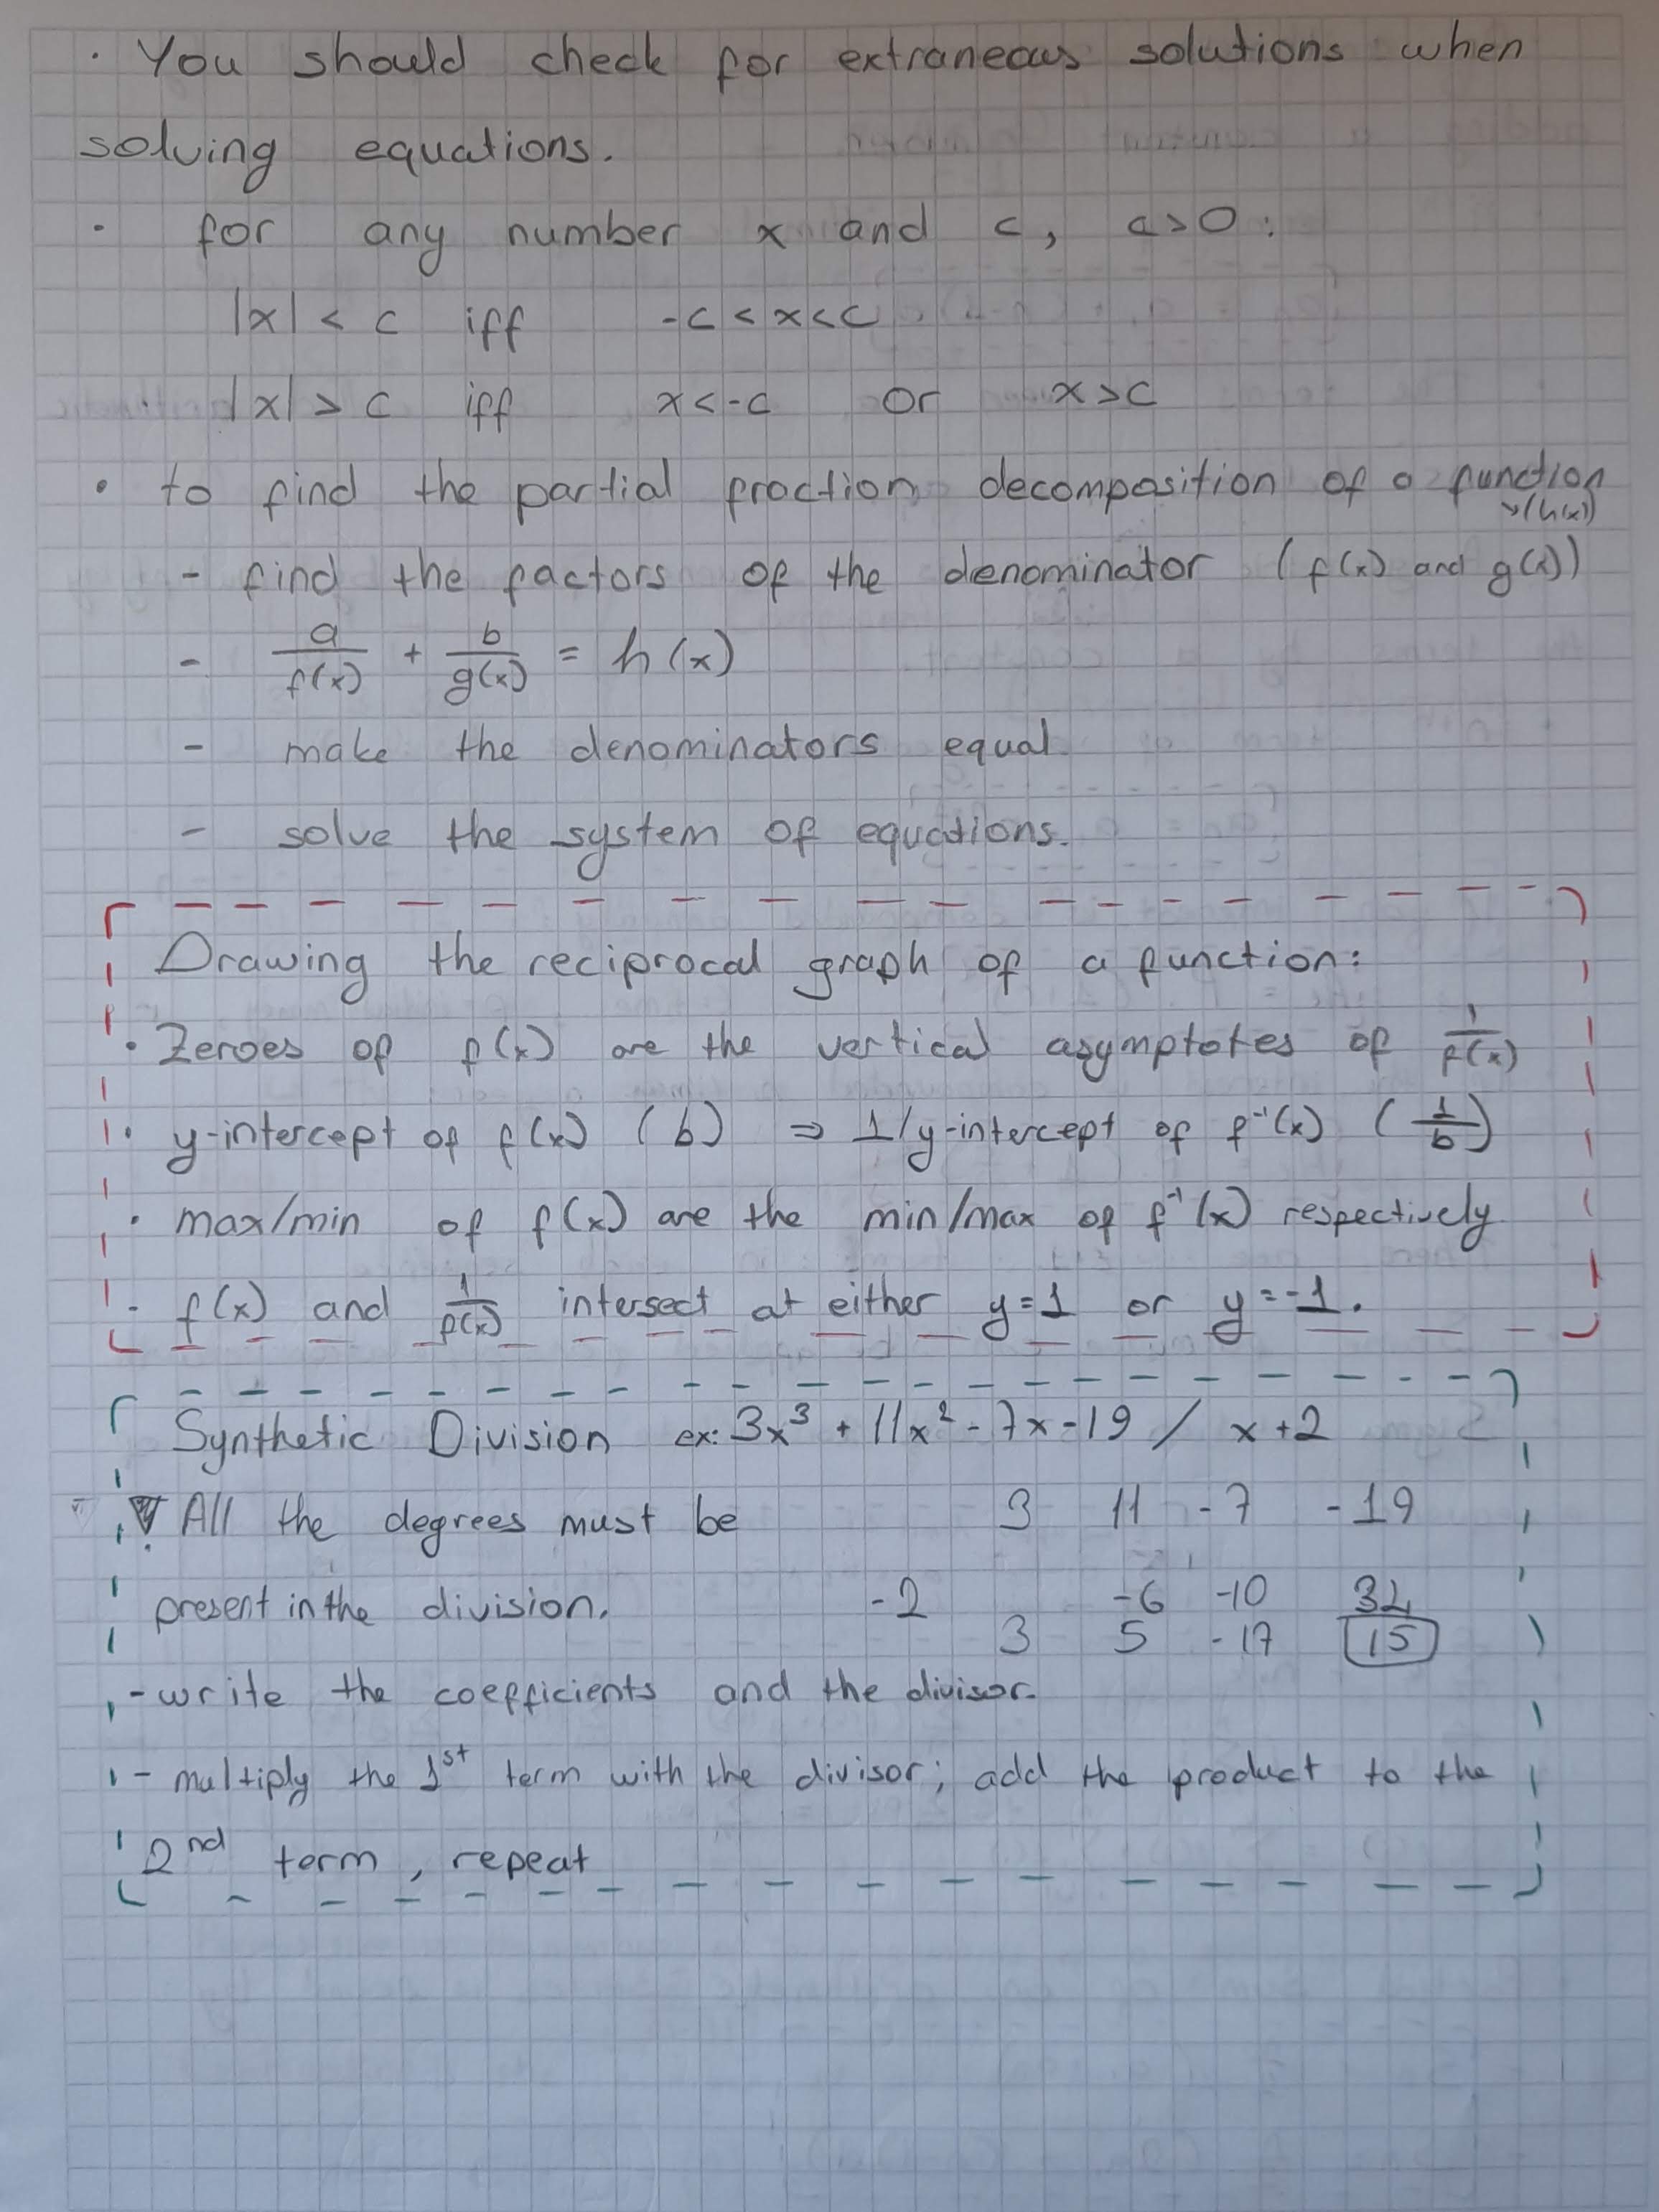 · You should check for extraneous solutions when
solving equations.
· for any number x and c, c>0 :
|x| < c iff -c < x < c
|x| > c iff x < -c or x > c
· to find the partial fraction decomposition of a function
↘(h(x))
- find the factors of the denominator (f(x) and g(x))
- a/f(x) + b/g(x) = h(x)
- make the denominators equal
- solve the system of equations.
Drawing the reciprocal graph of a function:
· Zeroes of f(x) are the vertical asymptotes of 1/f(x)
· y-intercept of f(x) (b) ⇒ 1/y-intercept of f⁻¹(x) (1/b)
· max/min of f(x) are the min/max of f⁻¹(x) respectively
· f(x) and 1/f(x) intersect at either y=1 or y=-1.
Synthetic Division ex: 3x³ + 11x² - 7x - 19 / x + 2
All the degrees must be 3 11 -7 -19
present in the division. -2 -6 -10 34
3 5 -17 15
- write the coefficients and the divisor.
- multiply the 1st term with the divisor; add the product to the
2nd term, repeat